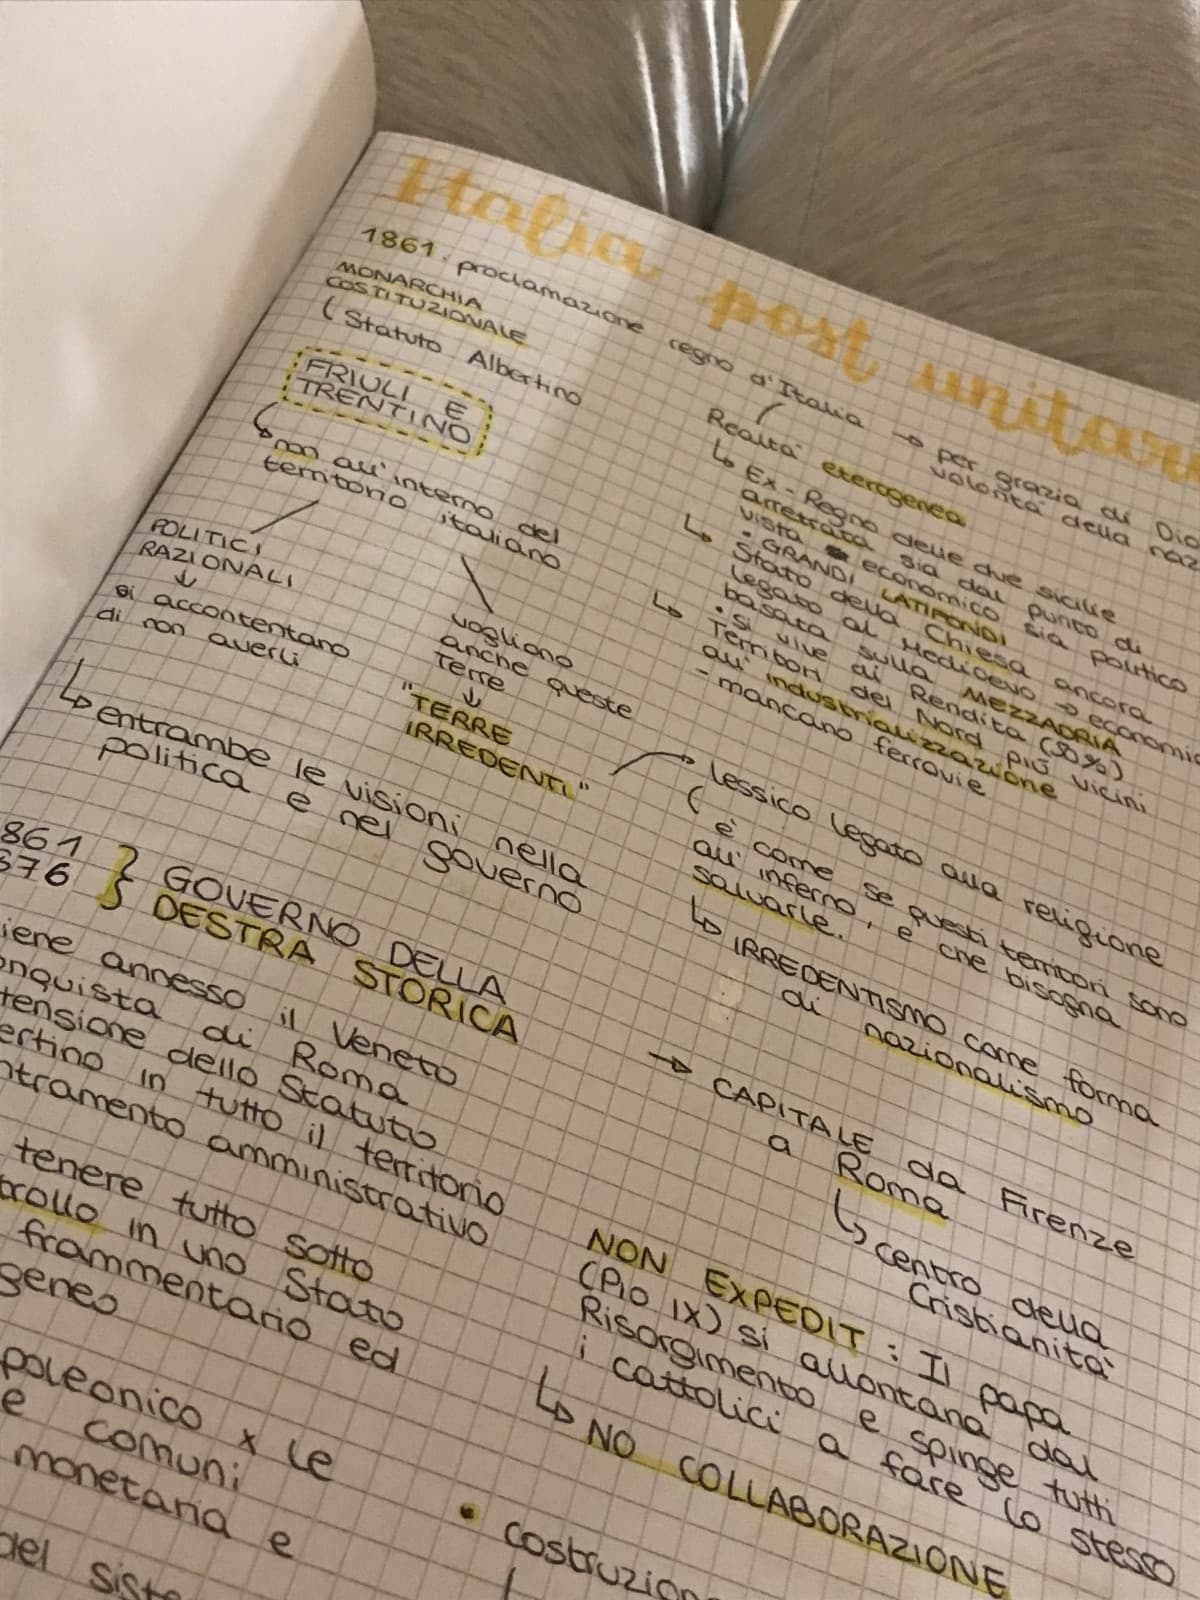 Italia post unitar
1861. proclamazione regno d'Italia → per grazia di Dio
volontà della naz
MONARCHIA
COSTITUZIONALE
( Statuto Albertino
FRIULI E
TRENTINO
↳ non all'interno del
territorio italiano
POLITICI
RAZIONALI
↓
si accontentano
di non averli
vogliono
anche queste
terre
↓
"TERRE
IRREDENTI"
↳ entrambe le visioni nella
politica e nel governo
Realtà eterogenea
↳ Ex-Regno delle due sicilie
arretrata sia dal punto di
vista economico sia politico
• GRANDI LATIFONDI
↳ Stato della Chiesa ancora
legato al Medioevo → economia
basata sulla MEZZADRIA
• si vive di Rendita (50%)
↳ Territori del Nord più vicini
all'industrializzazione
- mancano ferrovie
→ lessico legato alla religione
( è come se questi territori sono
all'inferno, e che bisogna
salvarle.
↳ IRREDENTISMO come forma
di nazionalismo
861
876 } GOVERNO DELLA
DESTRA STORICA
iene annesso il Veneto
onquista di Roma
tensione dello Statuto
ertino in tutto il territorio
ntramento amministrativo
tenere tutto sotto
trollo in uno Stato
frammentario ed
geneo
poleonico x le
e comuni
monetaria e
del siste
→ CAPITALE da Firenze
a Roma
↳ centro della
Cristianità
NON EXPEDIT: Il papa
(Pio IX) si allontana dal
Risorgimento e spinge tutti
i cattolici a fare lo stesso
↳ NO COLLABORAZIONE
• costruzion